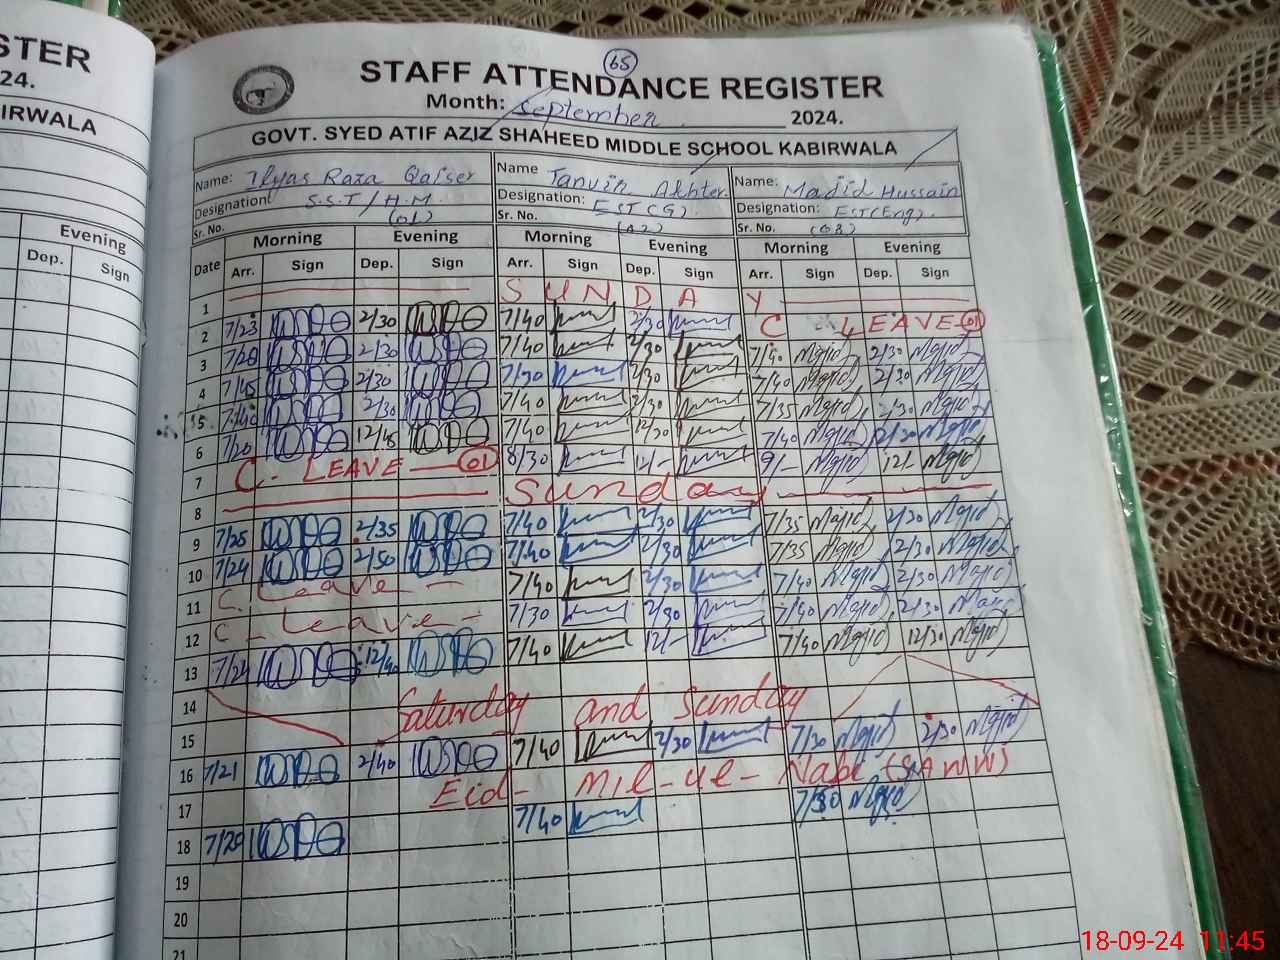 STER
24.
IRWALA
Evening
Dep. Sign
65
STAFF ATTENDANCE REGISTER
Month: September 2024.
GOVT. SYED ATIF AZIZ SHAHEED MIDDLE SCHOOL KABIRWALA
Name: Ilyas Raza Qaiser Name Tanvir Akhter Name: Madjid Hussain
Designation: S.S.T/H.M Designation: EST(G) Designation: EST(Eng).
Sr. No. (01) Sr. No. (02) Sr. No. (03)
Date Morning Evening Morning Evening Morning Evening
Arr. Sign Dep. Sign Arr. Sign Dep. Sign Arr. Sign Dep. Sign
1 SUNDAY
2 7/23 2/30 7/40 2/30 C LEAVE 01
3 7/20 2/30 7/40 2/30 7/40 Majid 2/30 Majid
4 7/45 2/30 7/30 2/30 7/40 Majid 2/30 Majid
5 7/40 2/30 7/40 2/30 7/35 Majid 2/30 Majid
6 7/20 12/45 7/40 12/30 7/40 Majid 12/30 Majid
7 C. LEAVE 01 8/30 12/- 9/- Majid 12/- Majid
8 Sunday
9 7/25 2/35 7/40 2/30 7/35 Majid 2/30 Majid
10 7/24 2/50 7/40 2/30 7/35 Majid 2/30 Majid
11 C. Leave - 7/40 2/30 7/40 Majid 2/30 Majid
12 C - Leave - 7/30 2/30 7/40 Majid 2/30 Majid
13 7/24 12/40 7/40 12/- 7/40 Majid 12/30 Majid
14 Saturday and Sunday
15
16 7/21 2/40 7/40 2/30 7/30 Majid 2/30 Majid
17 Eid- Mil-ul-Nabi (SAWW)
18 7/20 7/40 7/30 Majid
19
20
21
18-09-24 11:45